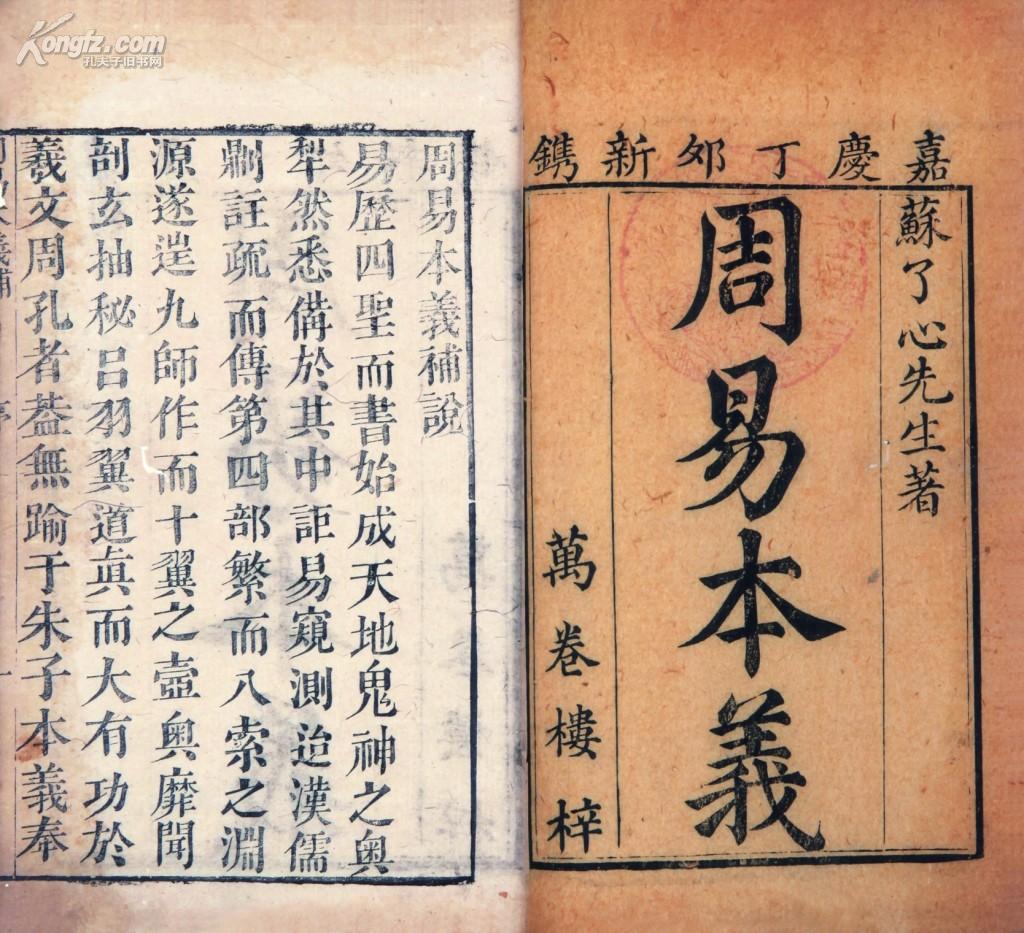 Kongfz.com
孔夫子旧书网
嘉慶丁卯新鐫
蘇了心先生著
周易本義
萬卷樓梓
周易本義補說
易歷四聖而書始成天地鬼神之奧
犁然悉備於其中詎易窺測迨漢儒
剏註疏而傳第四部繁而八索之淵
源遂遑九師作而十翼之壼奧靡聞
剖玄抽秘吕羽翼道眞而大有功於
羲文周孔者葢無踰于朱子本義奉